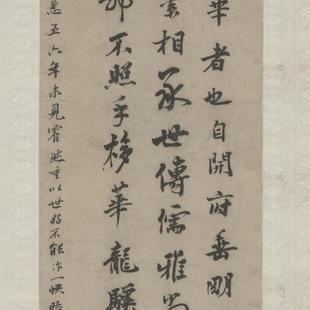 華者也自開府垂明
業相承世傳儒雅尚
不照乎移華龍驤
五六年未見霍然重以世好不能作一快